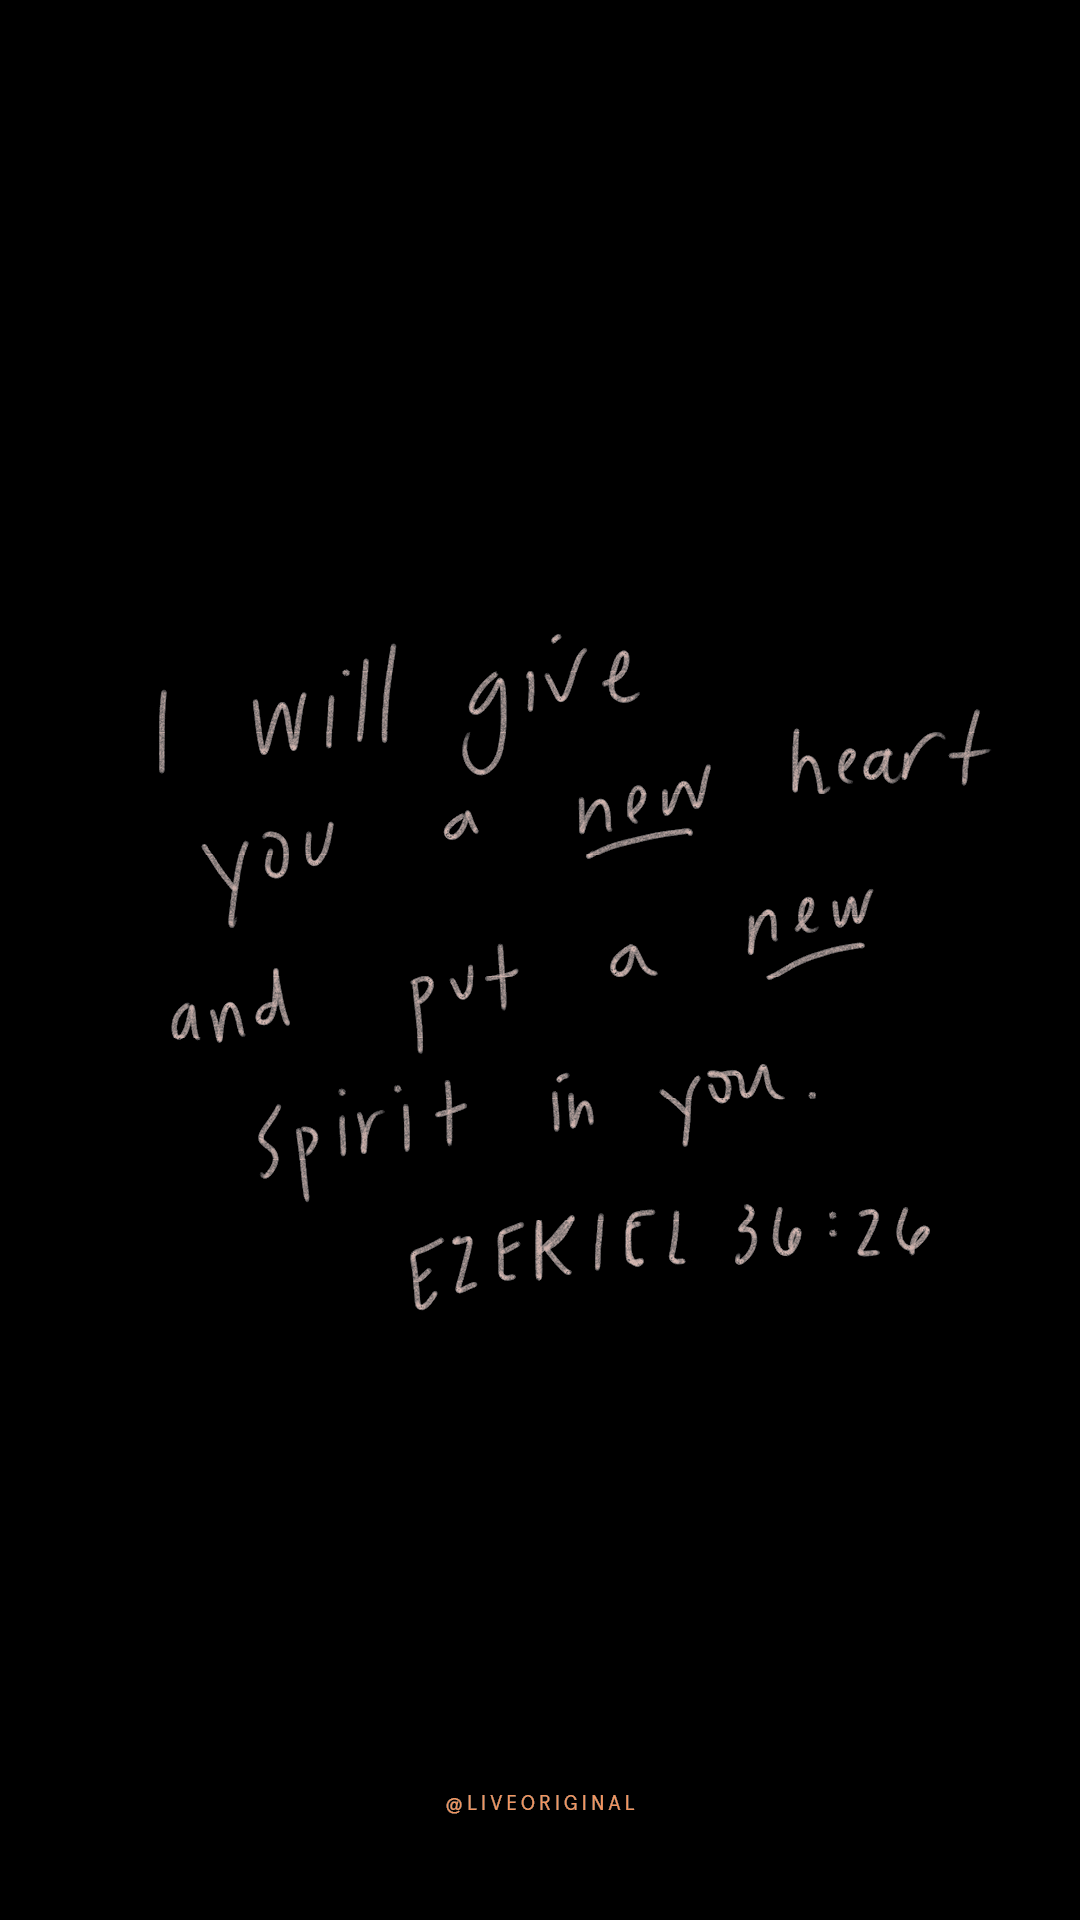 I will give
you a new heart
and put a new
spirit in you.
EZEKIEL 36:26
@LIVEORIGINAL